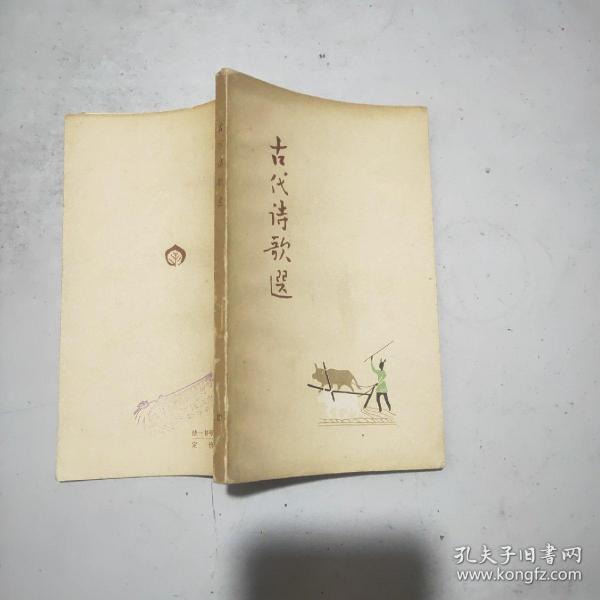 古代诗歌選
统一书号
定价
孔夫子旧書网
www.kongfz.com